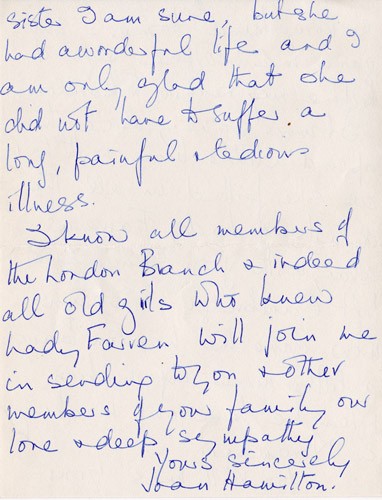 sister I am sure, but she
had a wonderful life and I
am only glad that she
did not have to suffer a
long, painful & tedious
illness.
I know all members of
the London Branch & indeed
all old girls who knew
Lady Farren will join me
in sending to you & other
members of your family our
love & deep sympathy
Yours sincerely
Joan Hamilton.